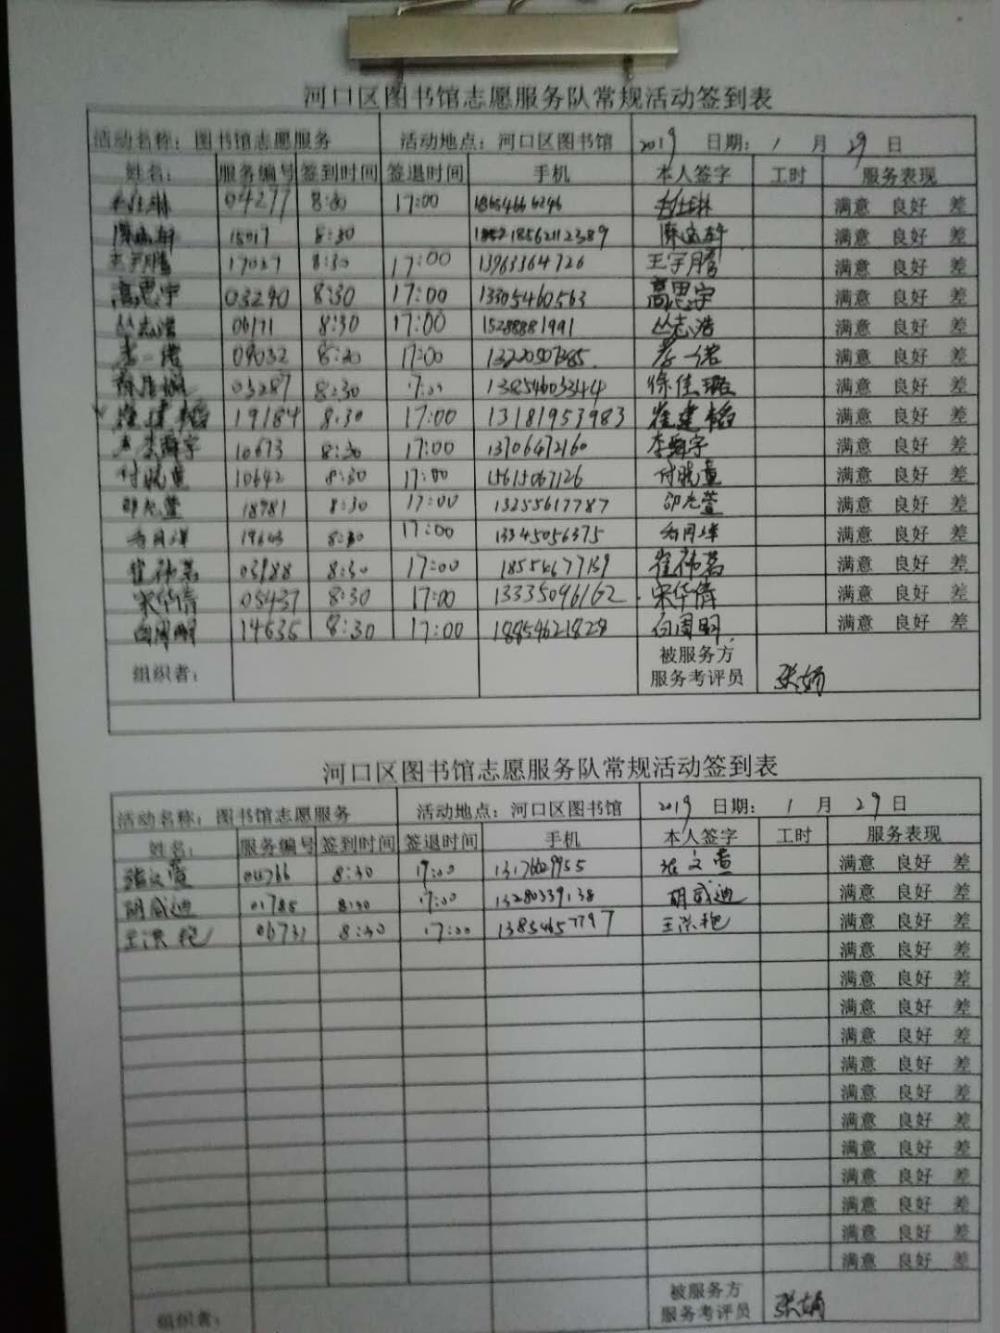 河口区图书馆志愿服务队常规活动签到表
活动名称：图书馆志愿服务 活动地点：河口区图书馆 2019 日期： 1 月 29 日
姓名： 服务编号 签到时间 签退时间 手机 本人签字 工时 服务表现
04277 8:30 17:00 满意 良好 差
8:30 满意 良好 差
王宇腾 17027 8:30 17:00 13963364726 王宇腾 满意 良好 差
高思宇 03290 8:30 17:00 13305460563 高思宇 满意 良好 差
丛志浩 06171 8:30 17:00 15288881991 丛志浩 满意 良好 差
李一诺 09032 8:30 17:00 李一诺 满意 良好 差
03287 8:30 17:00 13854603244 徐佳璐 满意 良好 差
崔建韬 19184 8:30 17:00 13181953983 崔建韬 满意 良好 差
李舞宇 10673 8:30 17:00 13706472160 李舞宇 满意 良好 差
付晓童 10642 8:30 17:00 15615067126 付晓童 满意 良好 差
18981 8:30 17:00 13255617787 满意 良好 差
8:30 17:00 13345056375 满意 良好 差
崔祎茗 03988 8:30 17:00 崔祎茗 满意 良好 差
宋华倩 05437 8:30 17:00 13335096162 宋华倩 满意 良好 差
白周明 14635 8:30 17:00 18854621828 白周明 满意 良好 差
组织者： 被服务方
服务考评员 张娟
河口区图书馆志愿服务队常规活动签到表
活动名称：图书馆志愿服务 活动地点：河口区图书馆 2019 日期： 1 月 29 日
姓名： 服务编号 签到时间 签退时间 手机 本人签字 工时 服务表现
张文萱 04766 8:30 17:00 张文萱 满意 良好 差
胡咸迪 01785 8:30 17:00 13280339138 胡咸迪 满意 良好 差
王洪艳 06731 8:30 17:00 13854657797 王洪艳 满意 良好 差
满意 良好 差
满意 良好 差
满意 良好 差
满意 良好 差
满意 良好 差
满意 良好 差
满意 良好 差
满意 良好 差
满意 良好 差
满意 良好 差
满意 良好 差
满意 良好 差
组织者： 被服务方
服务考评员 张娟